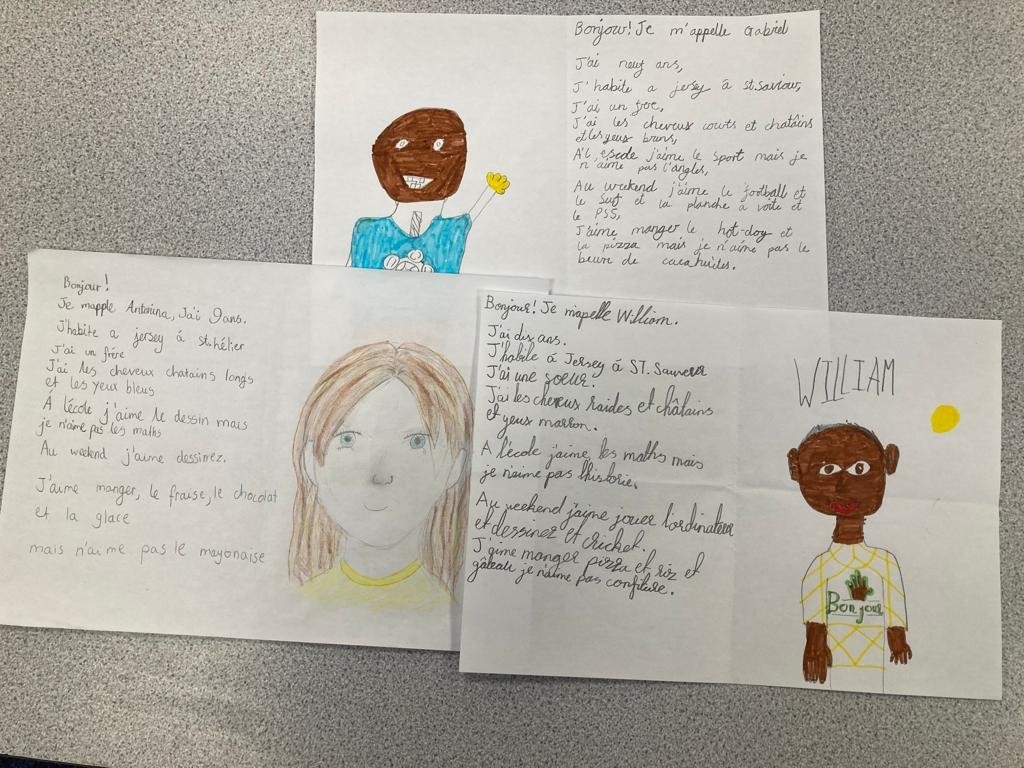 Bonjour! Je m'appelle Gabriel
J'ai neuf ans,
J'habite a jersy á st.saviour,
J'ai un
J'ai les cheveus courts et chatâins
et les yeus bruns,
A'l j'aime le sport mais je
n'aime pas l'angles,
Au weekend j'aime le football et
le surf et la planche à voite et
le PS5,
J'aime manger le hot-dog et
la pizza mais je n'aime pas le
beurre de
Bonjour!
Je mapple Antonina, J'ai 9 ans.
J'habite a jersey á st.hélier
J'ai un frére
J'ai les cheveux chatains longs
et les yeux bleus
Á l'école j'aime le dessin mais
je n'aime pas les maths
Au weekend j'aime dessinez.
J'aime manger, le fraise, le chocolat
et la glace
mais n'aime pas le mayonaise
Bonjour! Je m'apelle William.
J'ai dix ans.
J'habite á Jersey á ST. Sauveur
J'ai une soeur.
J'ai les cheveus raides et châtains
et yeus marron.
A l'école j'aime, les maths mais
je n'aime pas l'historie.
Au weekend j'aime jouer l'ordinateur
et dessinez et cricket.
J'aime manger pizza et riz et
gâteau je n'aime pas confiture.
WILLIAM
Bonjour